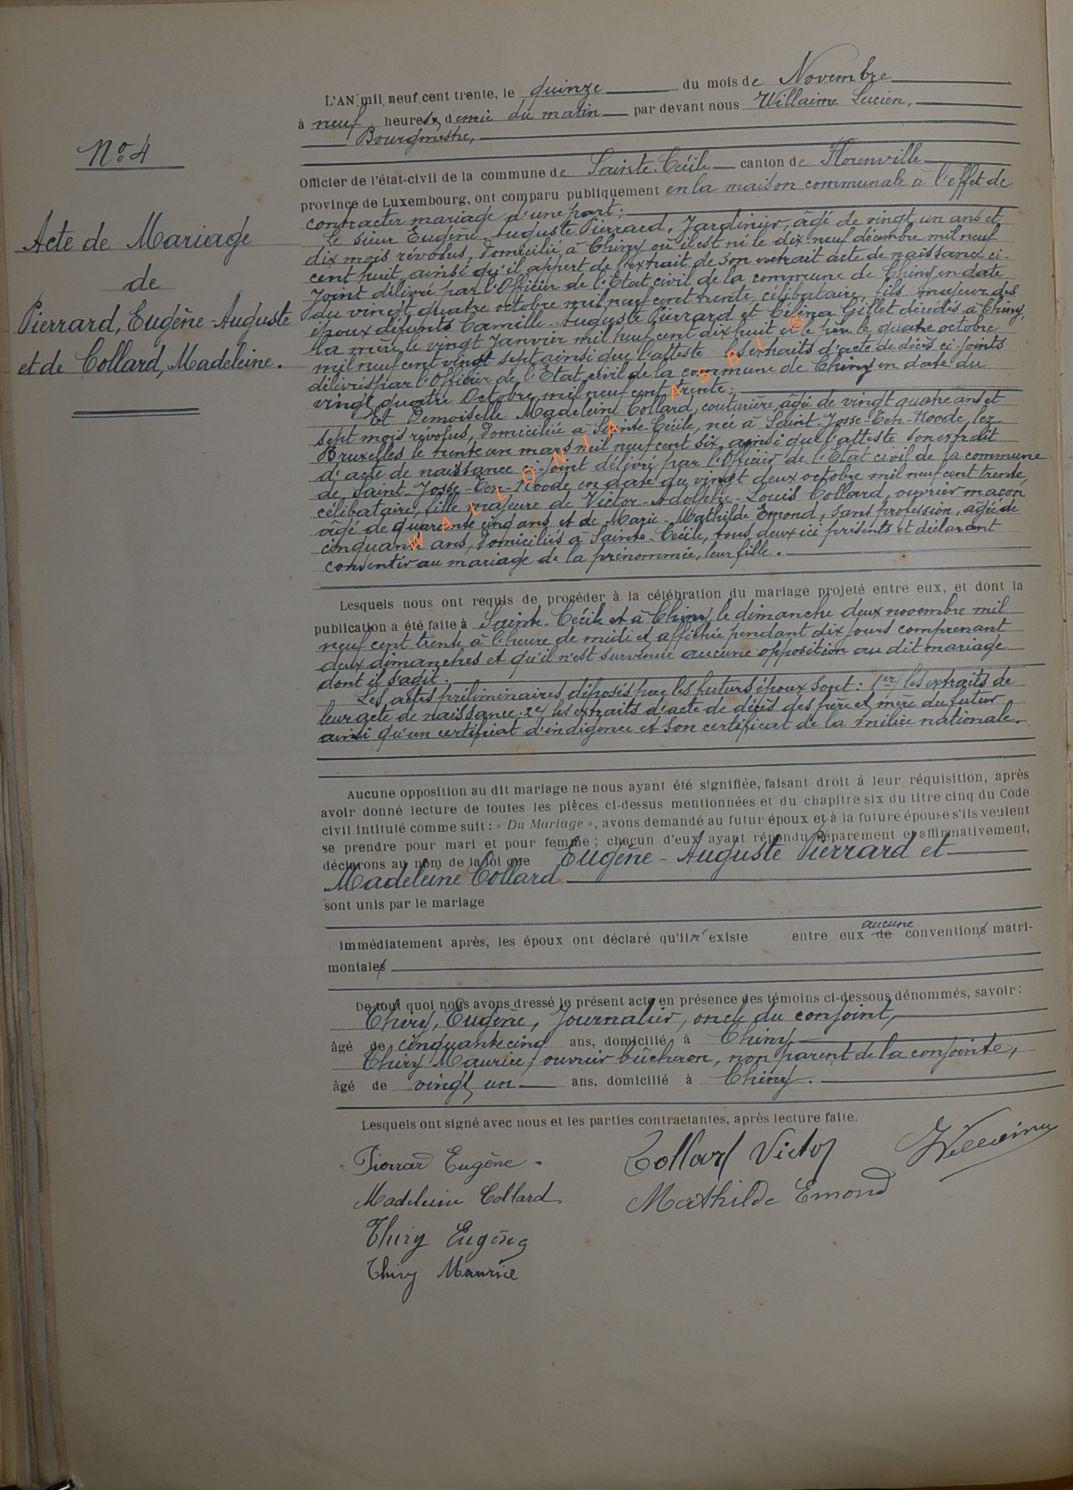 N° 4
Acte de Mariage
de
Pierrard, Eugène-Auguste
et de Collard, Madeleine.
L'AN mil neuf cent trente, le quinze du mois de Novembre
à neuf heures, demie du matin par devant nous Willaime Lucien,
Bourgmestre,
Officier de l'état-civil de la commune de Sainte-Cécile canton de Florenville
province de Luxembourg, ont comparu publiquement en la maison communale à l'effet de
contracter mariage d'une part:
Le sieur Eugène-Auguste Pierrard, Jardinier, âgé de vingt un ans et
dix mois révolus, domicilié à Chiny où il est né le dix neuf décembre mil neuf
cent huit, ainsi qu'il appert de l'extrait de son extrait acte de naissance ci-
joint délivré par l'Officier de l'Etat civil de la commune de Chiny en date
du vingt quatre octobre mil neuf cent trente, célibataire, fils majeur des
époux défunts Camille-Auguste Pierrard et Célina Gillet décédés à Chiny,
la mère le vingt Janvier mil neuf cent dix huit et le père le quatre octobre
mil neuf cent vingt sept ainsi que l'atteste les extraits d'acte de décès ci-joints
délivrés par l'Officier de l'Etat civil de la commune de Chiny en date du
vingt quatre Octobre mil neuf cent trente;
Et Demoiselle Madeleine Collard, couturière, âgée de vingt quatre ans et
sept mois révolus, domiciliée à Sainte-Cécile, née à Saint-Josse-Ten-Noode, lez
Bruxelles le trente un mars mil neuf cent six, ainsi que l'atteste son extrait
d'acte de naissance ci-joint délivré par l'Officier de l'Etat civil de la commune
de Saint-Josse-Ten-Noode en date du vingt deux octobre mil neuf cent trente,
célibataire, fille majeure de Victor-Adolphe-Louis Collard, ouvrier maçon
âgé de quarante cinq ans et de Marie-Mathilde Emond, sans profession, âgée de
cinquante ans, domiciliés à Sainte-Cécile, tous deux ici présents et déclarant
consentir au mariage de la prénommée, leur fille.
Lesquels nous ont requis de procéder à la célébration du mariage projeté entre eux, et dont la
publication a été faite à Sainte-Cécile et à Chiny le dimanche deux novembre mil
neuf cent trente à l'heure de midi et affichée pendant dix jours comprenant
deux dimanches et qu'il n'est survenu aucune opposition au dit mariage
dont il s'agit.
Les actes préliminaires déposés par les futurs époux sont: 1er/ les extraits de
leur acte de naissance; 2/ les extraits d'acte de décès des père et mère du futur
ainsi qu'un certificat d'indigence et son certificat de la milice nationale.
Aucune opposition au dit mariage ne nous ayant été signifiée, faisant droit à leur réquisition, après
avoir donné lecture de toutes les pièces ci-dessus mentionnées et du chapitre six du titre cinq du Code
civil intitulé comme suit: « Du Mariage », avons demandé au futur époux et à la future épouse s'ils veulent
se prendre pour mari et pour femme; chacun d'eux ayant répondu séparement et affirmativement,
déclarons au nom de la loi que Eugène-Auguste Pierrard et
Madeleine Collard
sont unis par le mariage
aucune
Immédiatement après, les époux ont déclaré qu'il n'existe entre eux de conventions matri-
moniales
De tout quoi nous avons dressé le présent acte en présence des témoins ci-dessous dénommés, savoir:
Thiry, Eugène, Journalier, oncle du conjoint,
âgé de cinquante cinq ans, domicilié à Chiny,
Thiry Maurice, ouvrier bûcheron, non parent de la conjointe,
âgé de vingt un ans, domicilié à Chiny.
Lesquels ont signé avec nous et les parties contractantes, après lecture faite.
Pierrard Eugène. Collard Victor Willaime
Madeleine Collard Mathilde Emond
Thiry Eugène
Thiry Maurice
WALLONIA ASBL ©